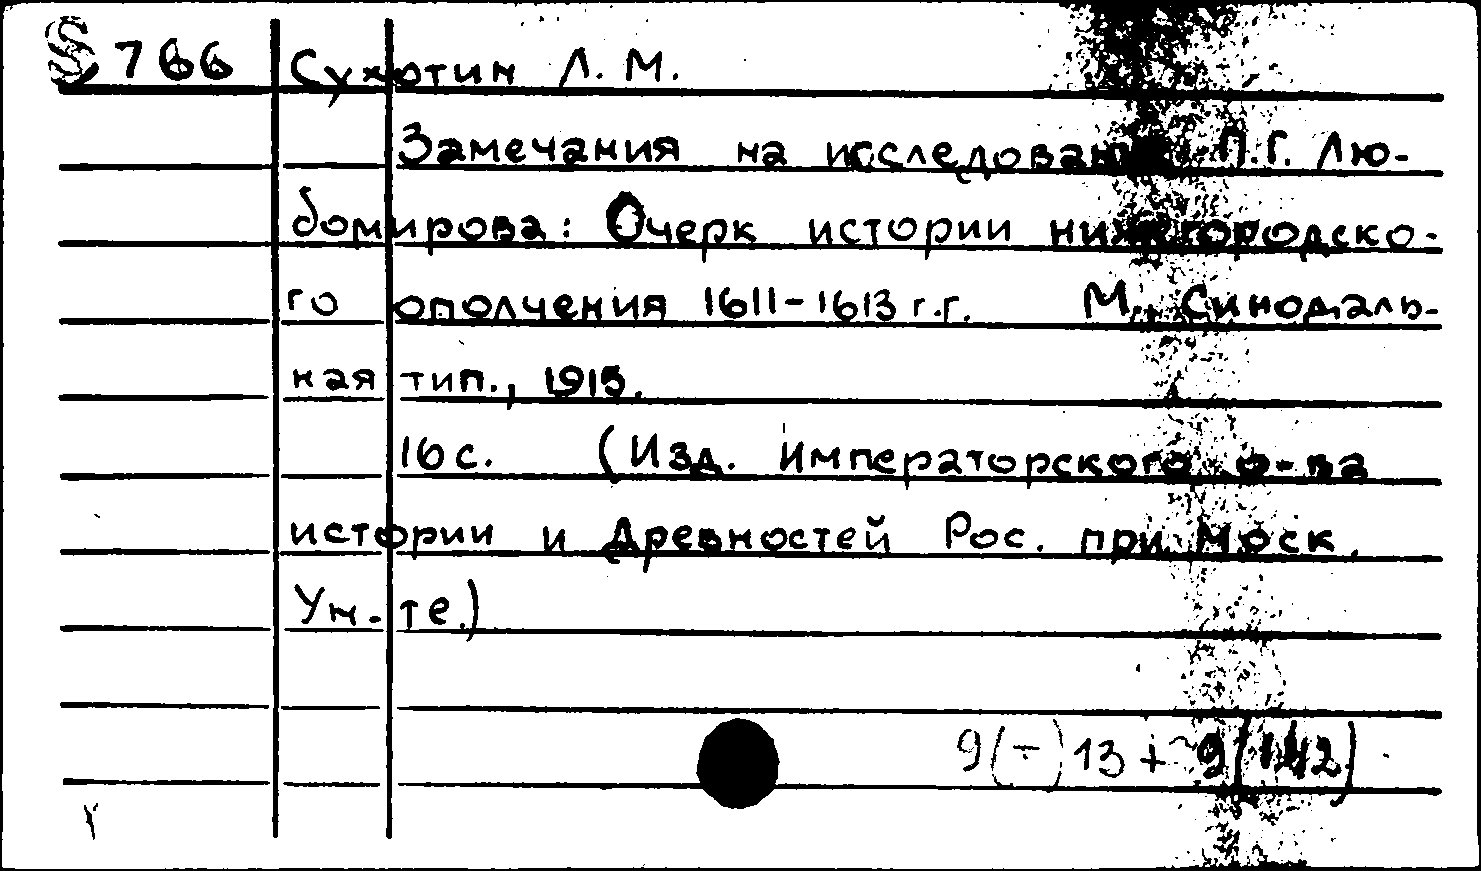 S 766 Сухотин Л. М.
Замечания на исследование П.Г. Лю-
бомирова: Очерк истории нижегородско-
го ополчения 1611-1613 г.г. М., Синодаль-
ная тип., 1915.
16 с. (Изд. Императорского о-ва
истории и Древностей Рос. при Моск.
Ун-те.)
9(-)13 + 9(142)